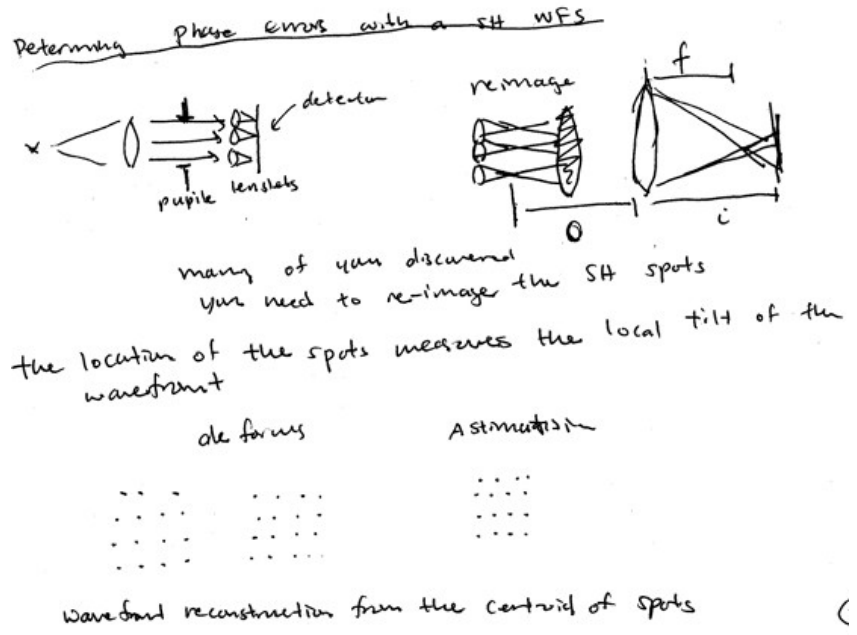 Determining Phase errors with a SH WFS
detector
pupil lenslets
reimage
f
o
i
many of you discovered
you need to re-image the SH spots
the location of the spots measures the local tilt of the
wavefront
defocus
Astimatism
wavefront reconstruction from the centroid of spots